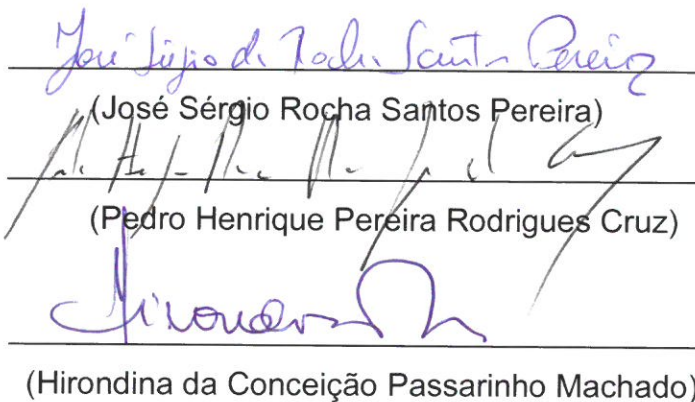 José Sérgio da Rocha Santos Pereira
(José Sérgio Rocha Santos Pereira)
(Pedro Henrique Pereira Rodrigues Cruz)
Hirondina
(Hirondina da Conceição Passarinho Machado)